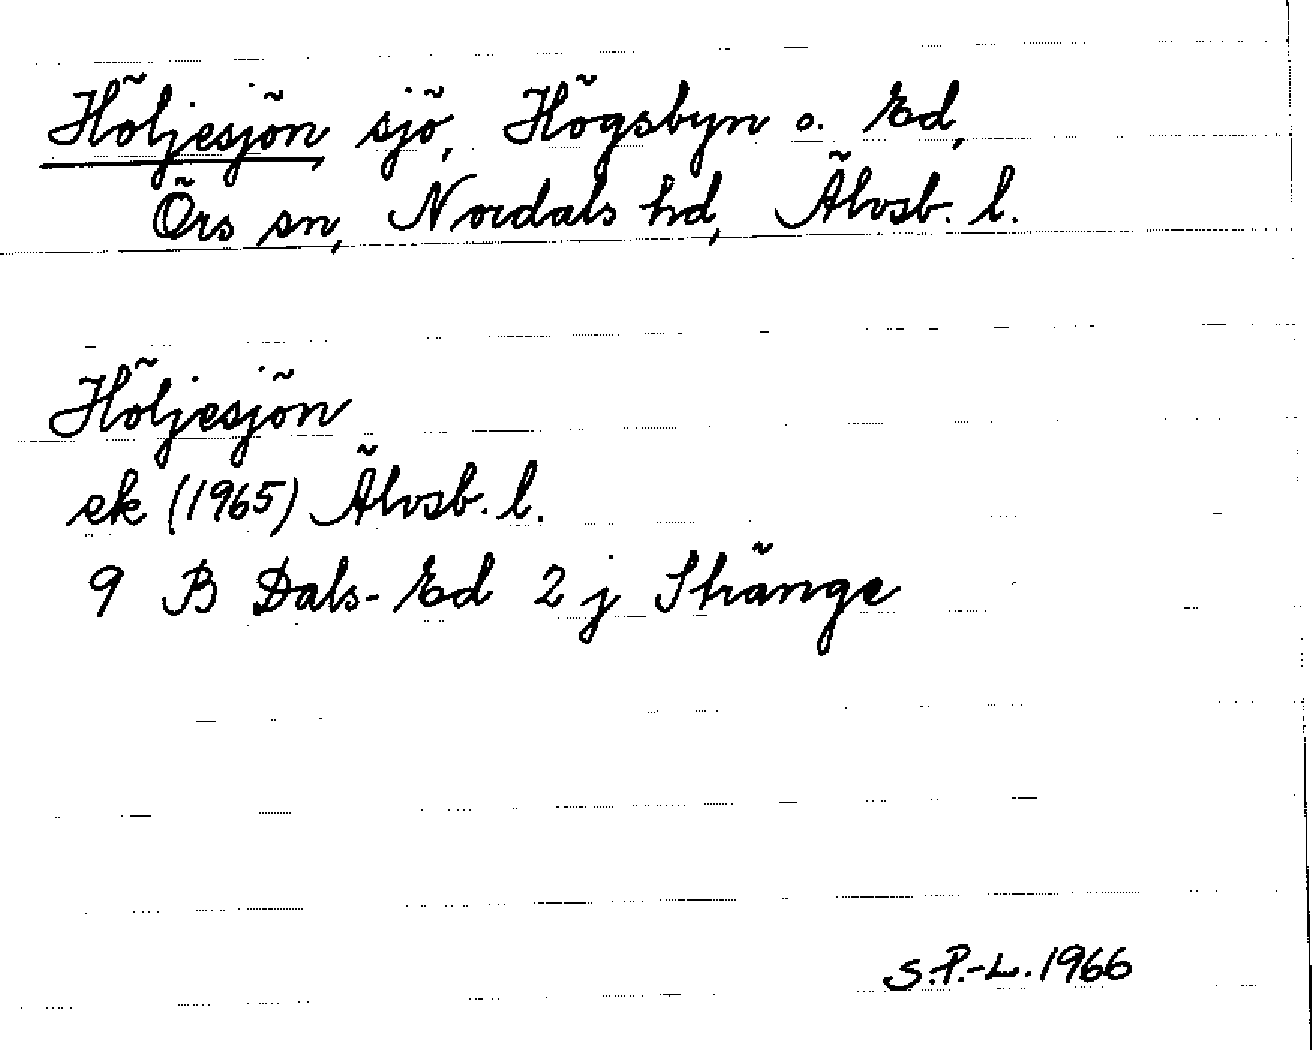 Höljesjön sjö, Högsbyn o. Ed,
Örs sn, Nordals hd, Älvsb. l.
Höljesjön
ek (1965) Älvsb. l.
9 B Dals-Ed 2 j Stränge
S.P.-L. 1966